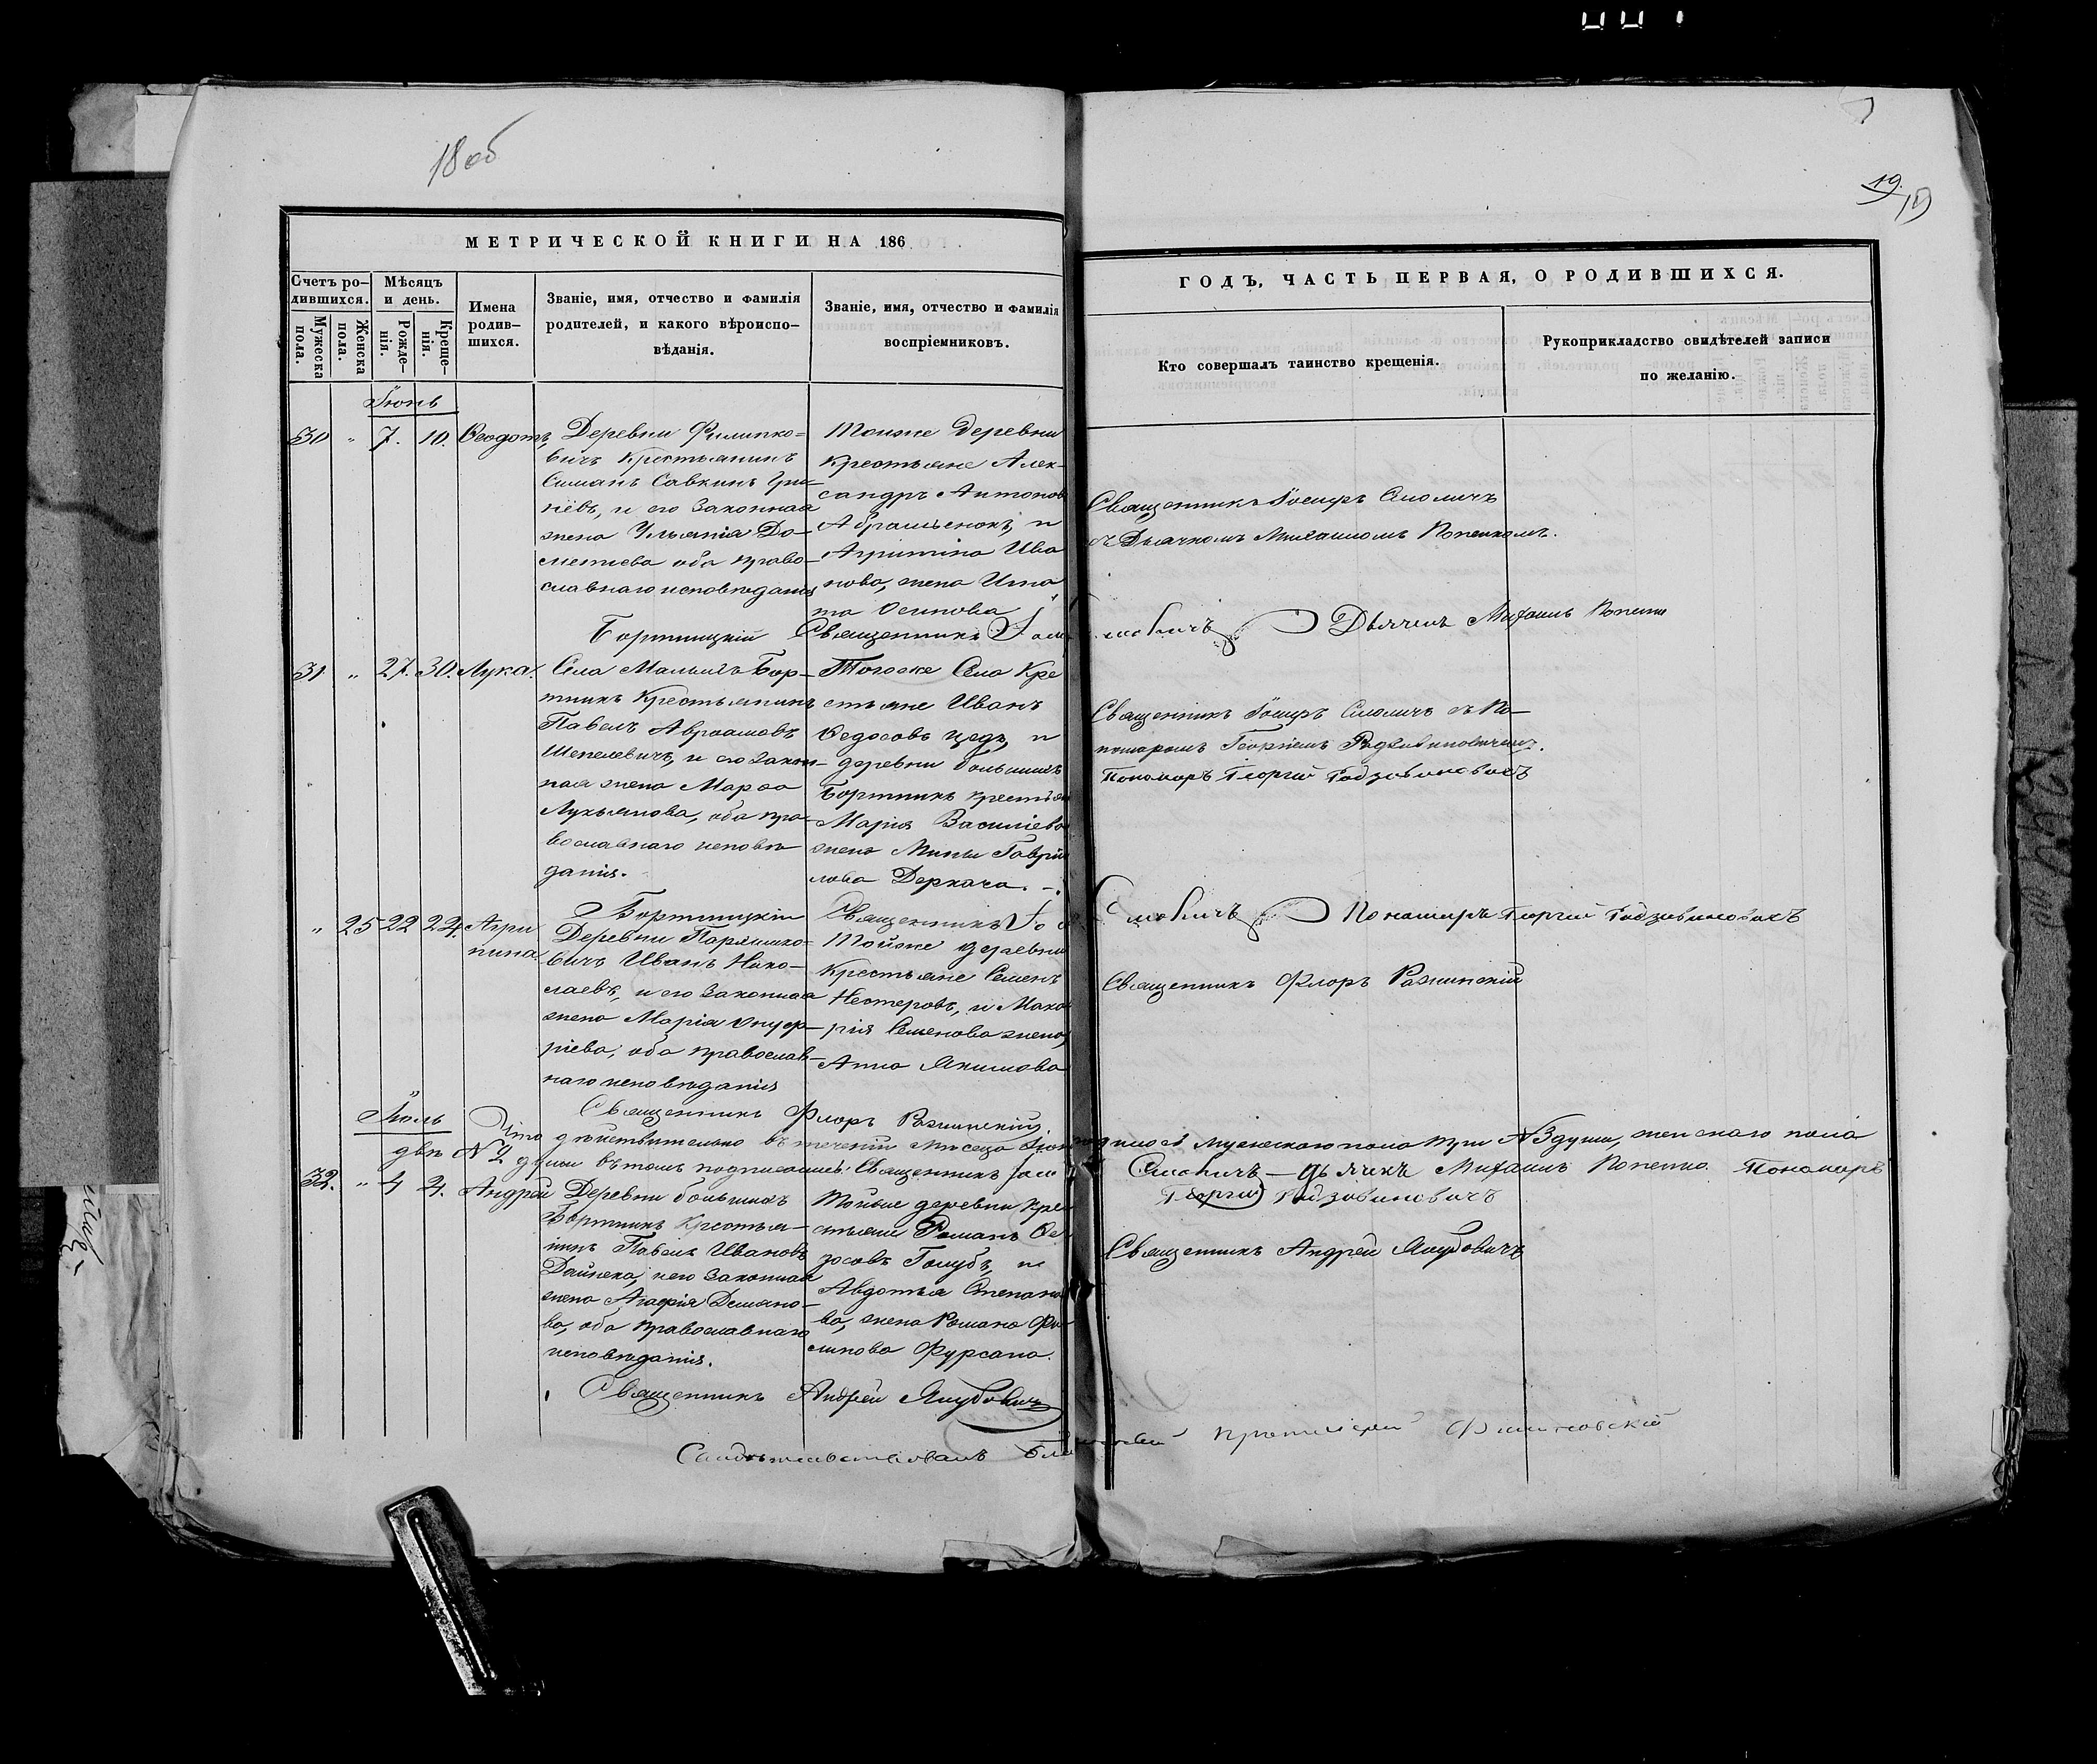 18 об
19.
19
МЕТРИЧЕСКОЙ КНИГИ НА 186
ГОДЪ, ЧАСТЬ ПЕРВАЯ, О РОДИВШИХСЯ.
Счетъ ро-
дившихся.
Мужеска
пола.
Женска
пола.
Мѣсяцъ
и день.
Рожде-
нія.
Креще-
нія.
Имена
родив-
шихся.
Званіе, имя, отчество и фамилія
родителей, и какого вѣроиспо-
вѣданія.
Званіе, имя, отчество и фамилія
воспріемниковъ.
Кто совершалъ таинство крещенія.
Рукоприкладство свидѣтелей записи
по желанію.
Іюнь
30 " 7. 10. Ѳеодотъ,
Деревни Филипко-
вичъ Крестьянинъ
Симанъ Савкинъ Гри-
невъ, и его Законная
жена Ульянія До-
метиева оба право-
славнаго исповѣданія
Тоиже Деревни
крестьяне Алек-
сандръ Антоновъ
Абрамёнокъ, и
Агрипина Ива
нова, жена Игна
та Осипова
Священникъ Іосифъ Смоличъ
съ Дьячкомъ Михаиломъ Копенкомъ.
Бортницкій Священникъ
Дьячекъ Михаилъ
31 " 27. 30. Лука.
Села Малыхъ Бор-
тникъ Крестьянинъ
Павелъ Авраамовъ
Шепелевичъ, и его Закон-
ная жена Марѳа
Лукьянова, оба пра-
вославнаго исповѣ
данія.
Тогоже Села Кре
стьяне Иванъ
Ѳедосовъ Цедъ, и
деревни большихъ
Бортникъ крестьян
Марія Василіева
жена Мины Гаврии
лова Деркача. -.
Священникъ Іосифъ Смоличъ съ По-
номаремъ Георгіемъ
Пономаръ Георгий
Бортницкій Священникъ
Пономаръ Георгий
" 25 22 24. Агри
пина.
Деревни
вичъ Иванъ Нико-
лаевъ, и его Законная
жена Марія Онуф-
ріева, оба православ-
наго исповѣданія
Тойже деревни
Крестьяне Семенъ
Нестеровъ, и Мака
рія Семенова жена,
Анна Якимова
Священникъ Флоръ Рожинскій
Священникъ Флоръ Рожинскій.
Іюль
Что дѣйствительно въ теченіи Мѣсяца Іюня родилось мужескаго пола три №3 души, женскаго пола
двѣ №2 души въ томъ подписались: Священникъ
Дьячекъ Михаилъ Пономаръ
Георгий
32. " 4 4. Андрей
Деревни большихъ
Бортникъ Крестья-
нинъ Павелъ Ивановъ
Дайнека, и его Законная
жена Агафія Демяно-
ва, оба православнаго
исповѣданія.
Тойже деревни Кре
стьяне Романъ Ѳе
досовъ Голубъ, и
Авдотья Степано
ва, жена Романа Фи-
липова Фурсана.
Священникъ Андрей Якубовичъ
Священникъ Андрей Якубовичъ
Свидѣтельствовалъ